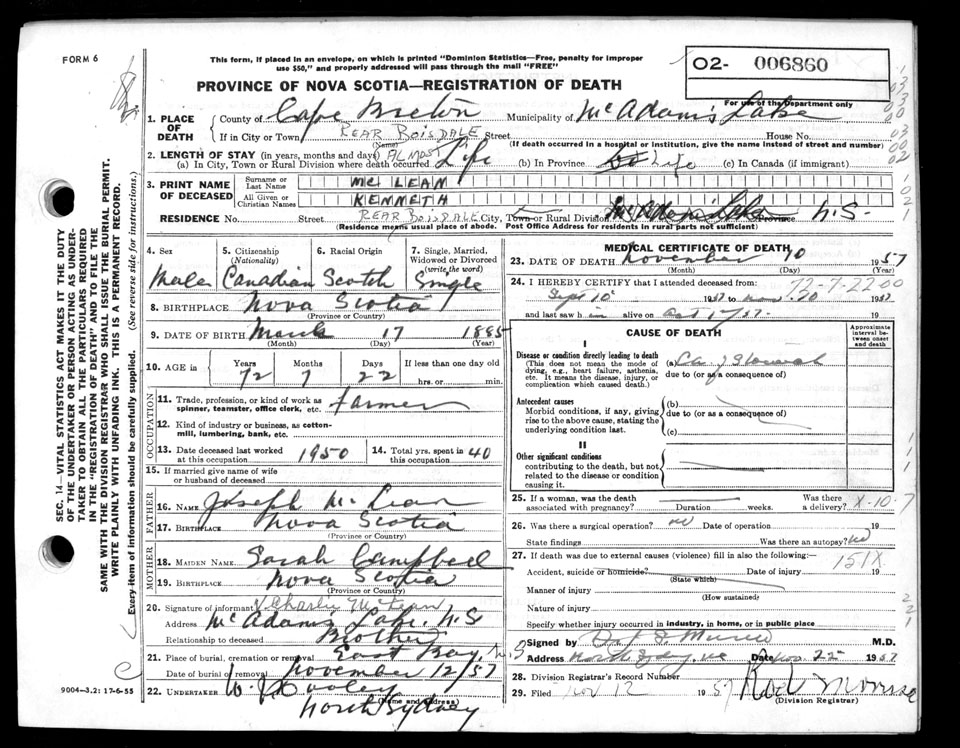 FORM 6
This form, if placed in an envelope, on which is printed "Dominion Statistics—Free, penalty for improper
use $50," and properly addressed will pass through the mail "FREE"
O2- 006860
For use of the Department only
PROVINCE OF NOVA SCOTIA—REGISTRATION OF DEATH
1. PLACE OF DEATH County of Cape Breton Municipality of McAdam's Lake
If in City or Town REAR BOISDALE Street House No.
(Name) (If death occurred in a hospital or institution, give the name instead of street and number)
2. LENGTH OF STAY (in years, months and days) ALMOST
(a) In City, Town or Rural Division where death occurred Life (b) In Province life (c) In Canada (if immigrant)
3. PRINT NAME OF DECEASED Surname or Last Name McLEAN
All Given or Christian Names KENNETH
RESIDENCE No. Street REAR BOISDALE City, Town or Rural Division McAdam's Lake Province N.S.
(Residence means usual place of abode. Post Office Address for residents in rural parts not sufficient)
4. Sex 5. Citizenship (Nationality) 6. Racial Origin 7. Single, Married, Widowed or Divorced (write the word)
Male Canadian Scotch Single
8. BIRTHPLACE Nova Scotia
(Province or Country)
9. DATE OF BIRTH March 17 1885
(Month) (Day) (Year)
10. AGE in Years Months Days If less than one day old
72 7 22 hrs. or min.
OCCUPATION
11. Trade, profession, or kind of work as spinner, teamster, office clerk, etc. Farmer
12. Kind of industry or business, as cotton-mill, lumbering, bank, etc.
13. Date deceased last worked at this occupation 1950 14. Total yrs. spent in this occupation 40
15. If married give name of wife or husband of deceased
FATHER
16. NAME Joseph McLean
17. BIRTHPLACE Nova Scotia
(Province or Country)
MOTHER
18. MAIDEN NAME Sarah Campbell
19. BIRTHPLACE Nova Scotia
(Province or Country)
20. Signature of informant Charlie McLean
Address McAdam's Lake, N.S
Relationship to deceased Brother
21. Place of burial, cremation or removal East Bay, N.S
Date of burial or removal November 12/57
22. UNDERTAKER W. J. Dooley
(Name and Address)
North Sydney
9004-3.2: 17-6-55
MEDICAL CERTIFICATE OF DEATH
23. DATE OF DEATH November 10 1957
(Month) (Day) (Year)
72-7-22 00
24. I HEREBY CERTIFY that I attended deceased from:
Sept 10 1957 to Nov. 10 1957
and last saw h im alive on Oct 19
CAUSE OF DEATH
Approximate interval between onset and death
I
Disease or condition directly leading to death
(This does not mean the mode of dying, e.g., heart failure, asthenia, etc. It means the disease, injury, or complication which caused death.)
(a) Ca. of Stomach
due to (or as a consequence of)
Antecedent causes
Morbid conditions, if any, giving rise to the above cause, stating the underlying condition last.
(b)
due to (or as a consequence of)
(c)
II
Other significant conditions
contributing to the death, but not related to the disease or condition causing it.
25. If a woman, was the death associated with pregnancy? Duration weeks. Was there a delivery? X-10-7
26. Was there a surgical operation? no Date of operation 19
State findings Was there an autopsy? No
27. If death was due to external causes (violence) fill in also the following:—
151X
Accident, suicide or homicide? Date of injury 19
(State which)
Manner of injury
(How sustained)
Nature of injury
Specify whether injury occurred in industry, in home, or in public place
Signed by M.D.
Address North Sydney, Date Nov 22 1957
28. Division Registrar's Record Number
29. Filed Nov 12 1957
(Division Registrar)
SEC. 14—VITAL STATISTICS ACT MAKES IT THE DUTY
OF THE UNDERTAKER OR PERSON ACTING AS UNDER-
TAKER TO OBTAIN ALL THE PARTICULARS REQUIRED
IN THE "REGISTRATION OF DEATH" AND TO FILE THE
SAME WITH THE DIVISION REGISTRAR WHO SHALL ISSUE THE BURIAL PERMIT.
WRITE PLAINLY WITH UNFADING INK. THIS IS A PERMANENT RECORD.
Every item of information should be carefully supplied. (See reverse side for instructions.)